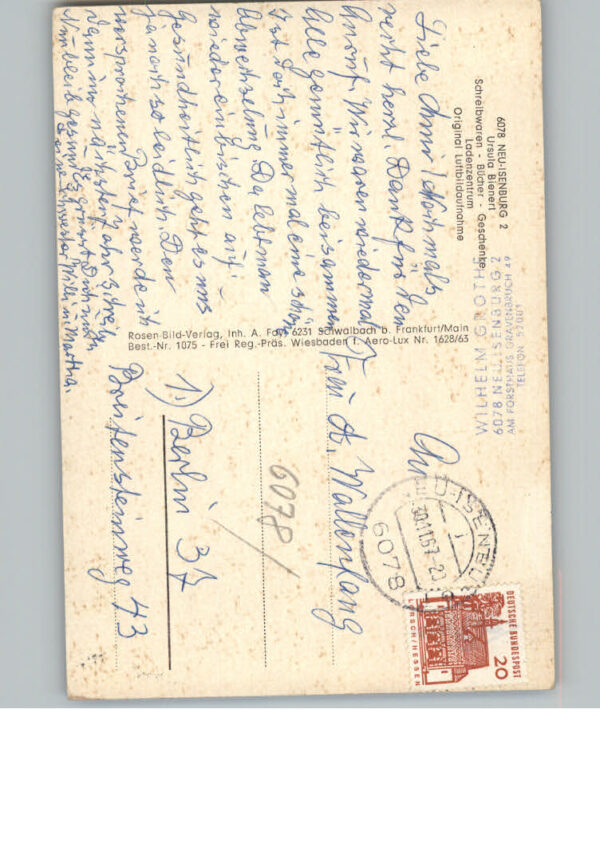 6078 NEU-ISENBURG 2
Ursula Bienert
Schreibwaren - Bücher - Geschenke
Ladenzentrum
Original Luftbildaufnahme
WILHELM GROTHE
6078 NEU-ISENBURG 2
AM FORSTHAUS GRAVENBRUCH 49
TELEFON
Liebe Änni! Nochmals
recht herzl. Dank für den
Anruf. Wir waren wiedermal
Alle gemütlich beisammen
Ist doch immer mal eine schöne
Abwechselung. Da lebt man
wieder ein bischen auf! –
Gesundheitlich geht es uns
ja noch so leidlich. Den
versprochenen Brief werde ich
dann im nächsten Jahr schreib.
Nun bleib gesund
Deine Schwester Willi u. Martha.
Rosen-Bild-Verlag, Inh. A. Fay, 6231 Schwalbach b. Frankfurt/Main
Best.-Nr. 1075 - Frei Reg.-Präs. Wiesbaden f. Aero-Lux Nr. 1628/63
NEU-ISENBURG
30.11.67-20
6078
DEUTSCHE BUNDESPOST
20
LORSCH/HESSEN
An
Frau A. Wallenfang
6078/
1.) Berlin 37
Breitensteinweg 43